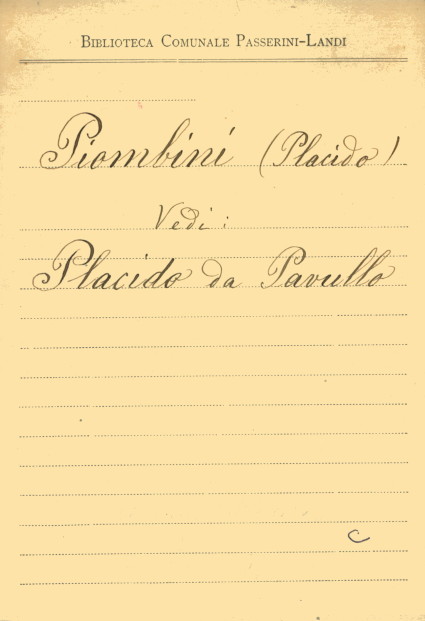 BIBLIOTECA COMUNALE PASSERINI-LANDI
Piombini (Placido)
Vedi:
Placido da Pavullo
C